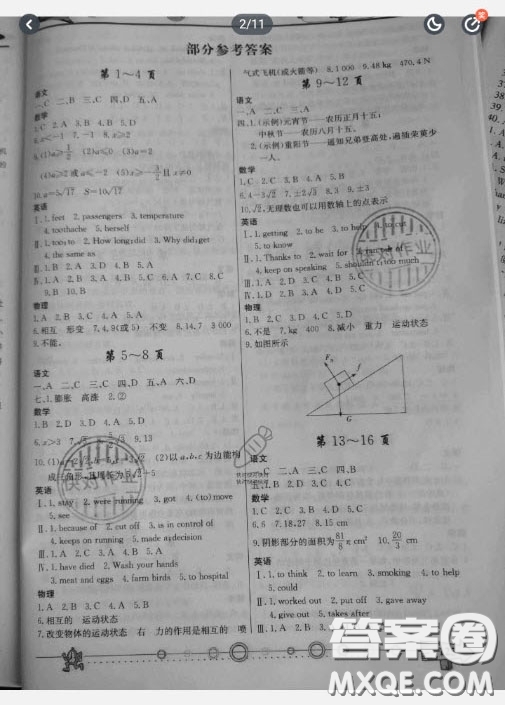 2/11
部分参考答案
第1～4页
语文
一、C 二、B 三、C 四、D 五、A
数学
1.C 2.D 3.A 4.B 5.A
6.x<-1 7.-1 8.x≥2
10.a=5√17 S=10√17
英语
Ⅰ.1.feet 2.passengers 3.temperature
4.toothache 5.herself
Ⅱ.1.too;to 2.How long;did 3.Why did;get
4.the same as
Ⅲ.1.B 2.A 3.D 4.B 5.A
Ⅳ.1.A 2.B 3.D 4.B 5.C 6.A 7.C 8.C
9.B 10.B
物理
1.A 2.B 3.C 4.D 5.A
6.相互 形变 7.4,9(或5) 不变 8.14.7 3 000
9.不能。
第5～8页
语文
一、A 二、C 三、C 四、D 五、A 六、D
七、1.膨胀 高涨 2.②
数学
1.A 2.B 3.C 4.D 5.B
英语
Ⅰ.1.stay 2.were running 3.got 4.(to) move
5.see
Ⅱ.1.because of 2.cut off 3.is in control of
4.keeps on running 5.made a decision
Ⅲ.1.D 2.C 3.A 4.A 5.D
Ⅳ.1.have died 2.Wash your hands
3.meat and eggs 4.farm birds 5.to hospital
物理
1.A 2.B 3.C 4.A 5.B
6.相互的 运动
7.改变物体的运动状态 右 力的作用是相互的 喷
气式飞机(或火箭等) 8.1 000 9.48 kg 470.4 N
第9～12页
语文
一、A 二、C 三、A
四、1.(示例)元宵节——农历正月十五;
中秋节——农历八月十五。
2.(示例)重阳节——遍知兄弟登高处,遍插茱萸少
一人。
数学
1.C 2.C 3.B 4.A 5.B
6.4-3√2 7.±2√3 8.3 9.±3
10.√2,无理数也可以用数轴上的点表示
英语
Ⅰ.1.getting 2.to be 3.to help
5.to know
Ⅱ.1.Thanks to 2.wait for
4.keep on speaking 5.shouldn't;too much
Ⅳ.1.D 2.B 3.A 4.B 5.C
物理
1.A 2.B 3.C 4.D 5.A
6.不是 7.kg 400 8.减小 重力 运动状态
9.如图所示
F
G
第13～16页
语文
一、C 二、A 三、C 四、B
数学
1.C 2.B 3.C 4.D 5.D
6.6 7.18.27 8.15 cm
9.阴影部分的面积为81/8 cm² 10.20/3 cm
英语
Ⅰ.1.to think 2.to learn 3.smoking 4.to help
5.to cut
Ⅱ.1.worked out 2.put off 3.gave away
4.give out 5.takes after
Ⅲ.1.A 2.C
快对作业
快对作业
答案圈
MXQE.COM